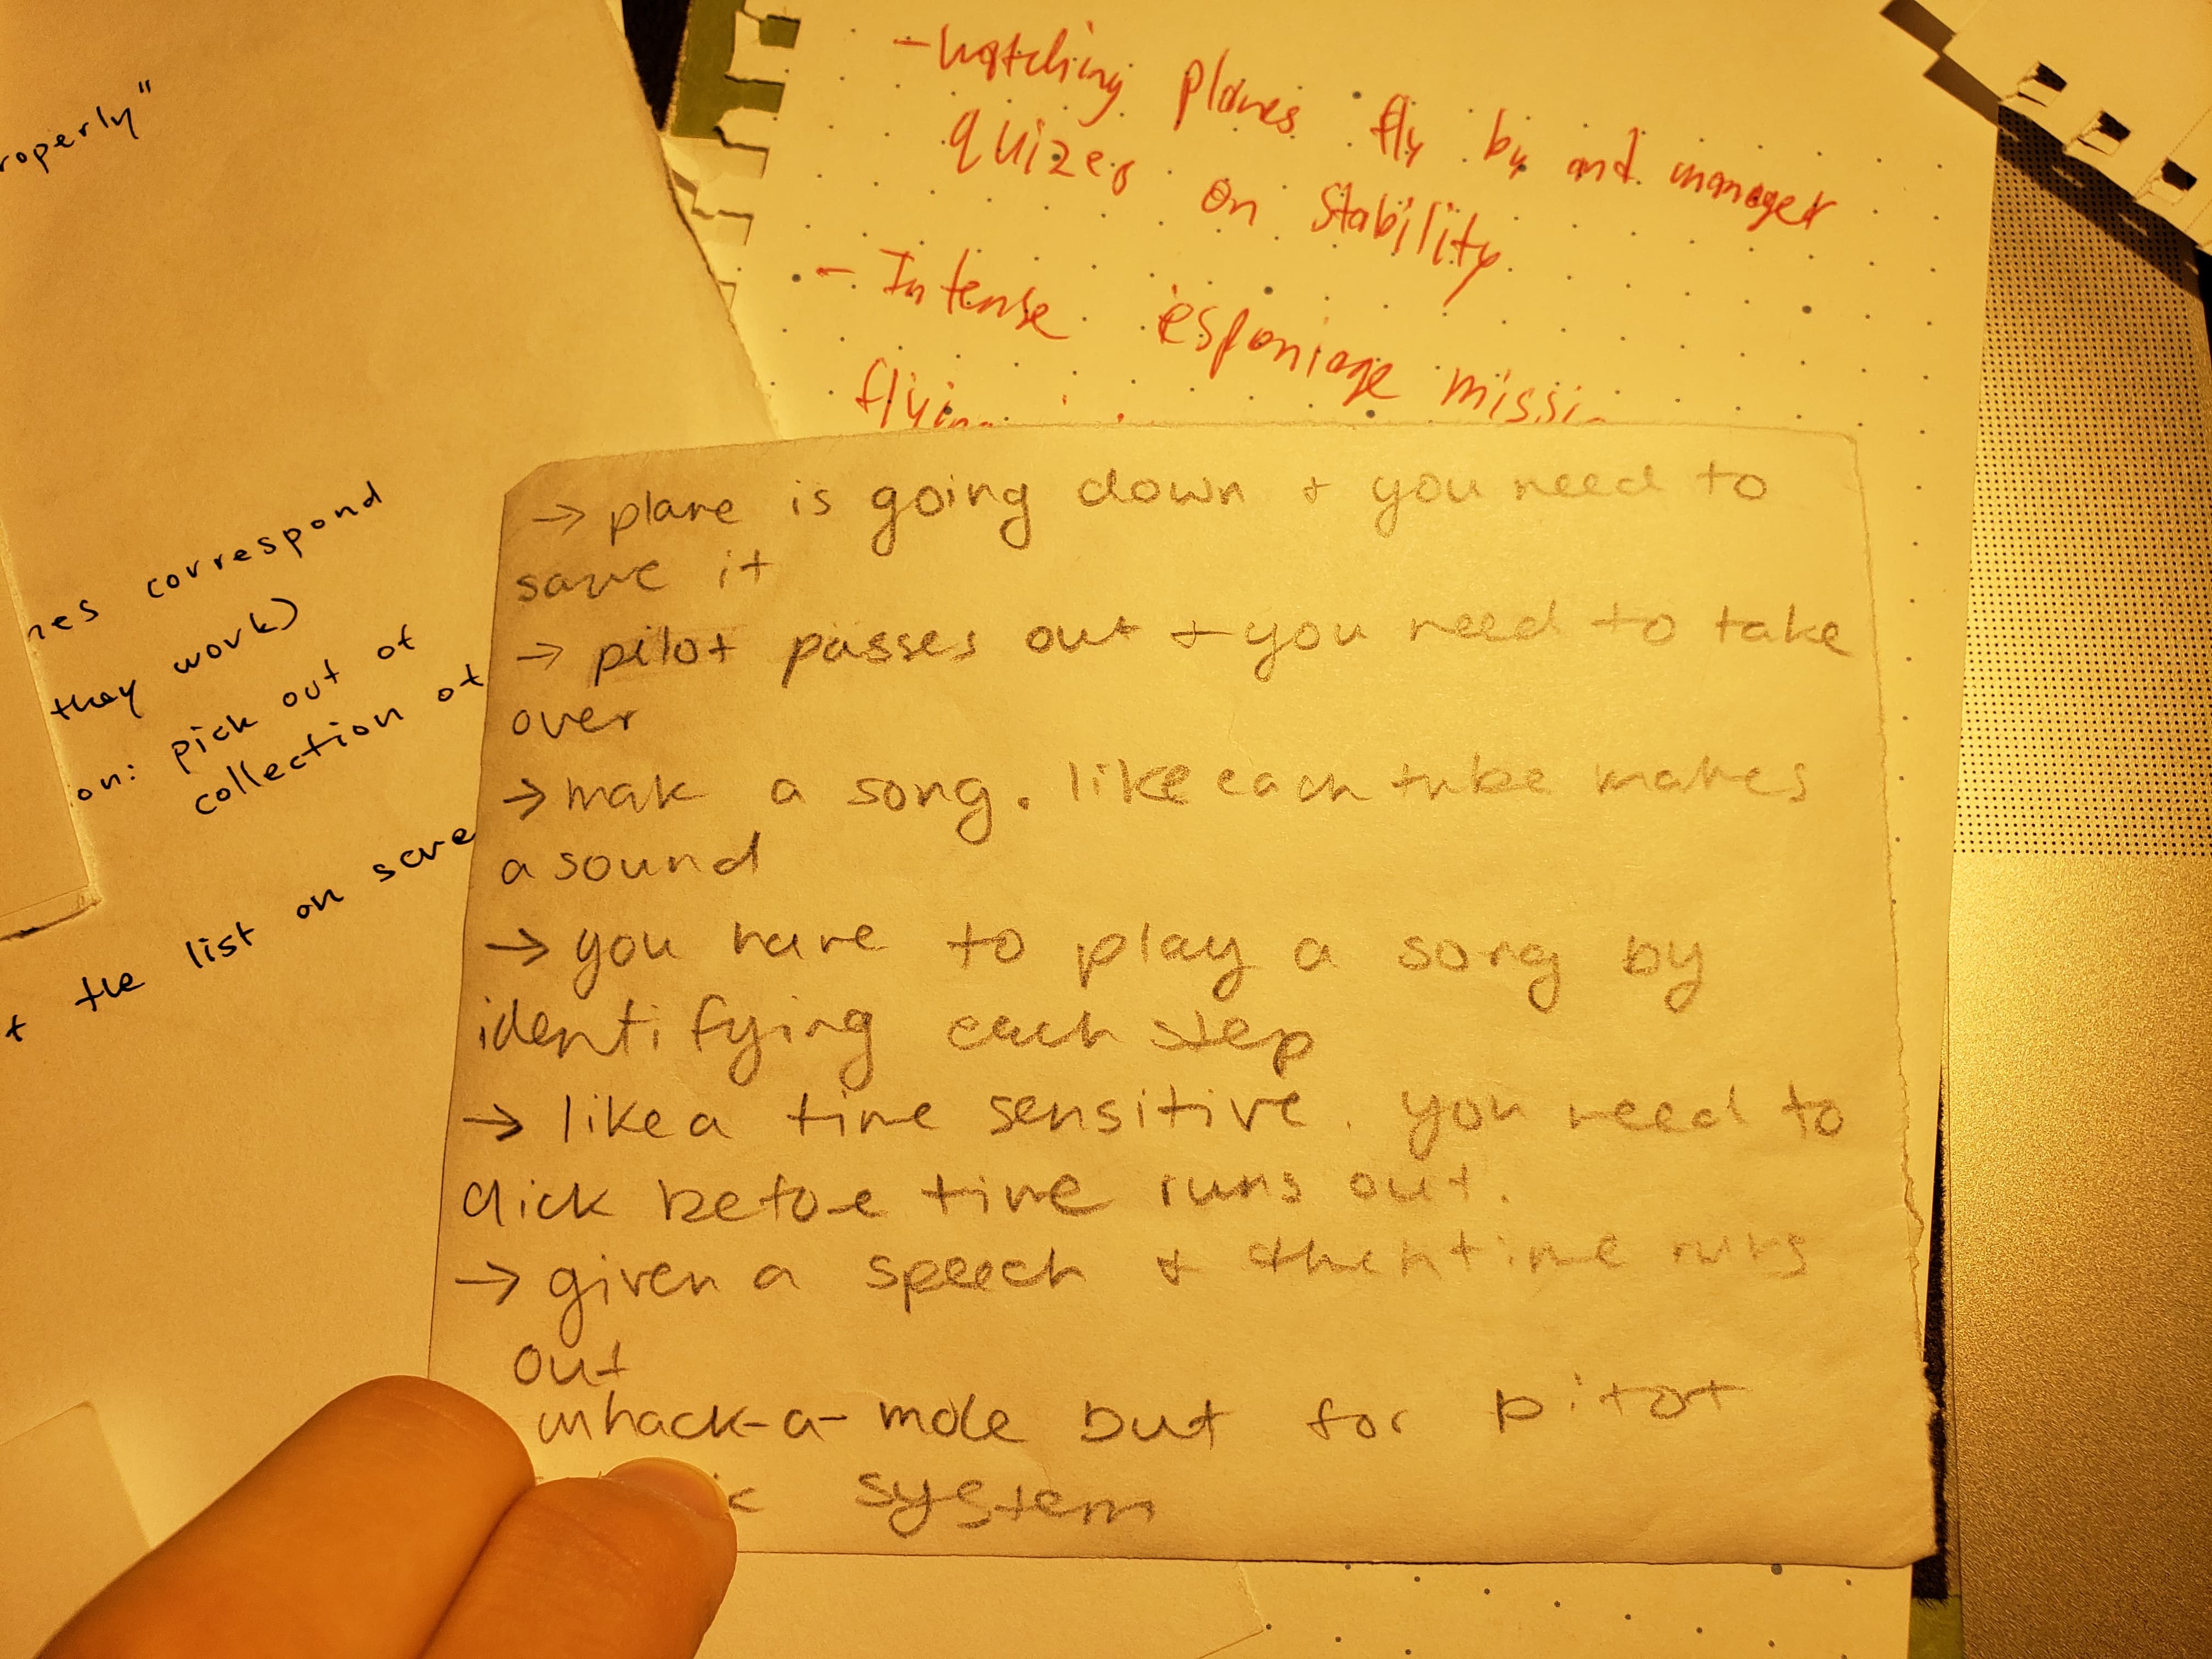 roperly"
nes correspond
they work)
on: pick out of
collection of
t the list on scre
- Watching planes fly by and manager
quizes on stability
- Intense esponiage missi
flying
→ plane is going down + you need to
save it
→ pilot passes out + you need to take
over
→ mak a song. like each tube makes
a sound
→ you have to play a song by
identifying each step
→ like a time sensitive. you need to
click before time runs out.
→ given a speech + then time runs
out
whack-a-mole but for pitot
system